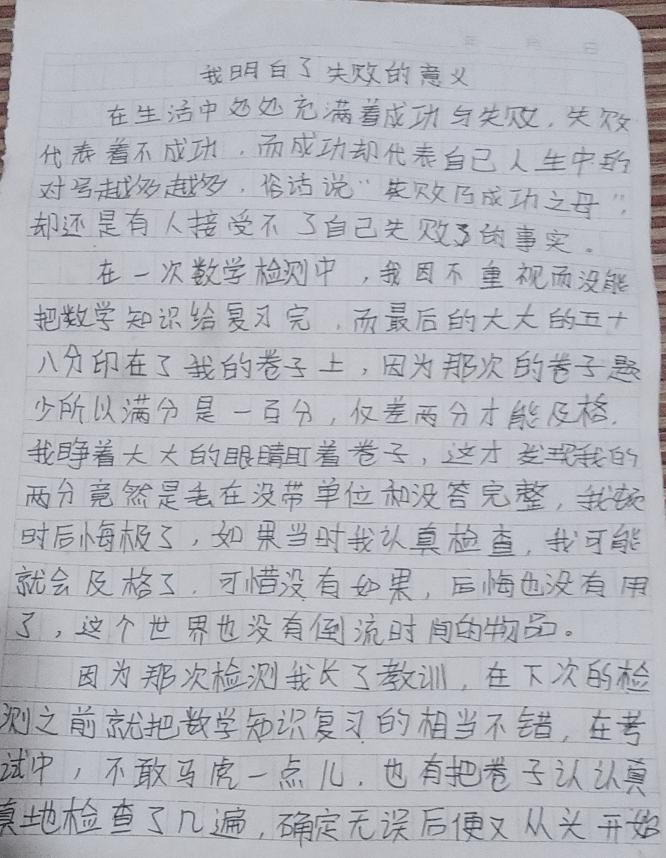 年 月 日
我明白了失败的意义
在生活中处处充满着成功与失败，失败
代表着不成功，而成功却代表自己人生中的
对号越多越多，俗话说"失败乃成功之母"，
却还是有人接受不了自己失败了的事实。
在一次数学检测中，我因不重视而没能
把数学知识给复习完，而最后的大大的五十
八分印在了我的卷子上，因为那次的卷子题
少所以满分是一百分，仅差两分才能及格，
我睁着大大的眼睛盯着卷子，这才发现我的
两分竟然是丢在没带单位和没答完整，我顿
时后悔极了，如果当时我认真检查，我可能
就会及格了，可惜没有如果，后悔也没有用
了，这个世界也没有倒流时间的物品。
因为那次检测我长了教训，在下次的检
测之前就把数学知识复习的相当不错，在考
试中，不敢马虎一点儿，也有把卷子认认真
真地检查了几遍，确定无误后便又从头开始